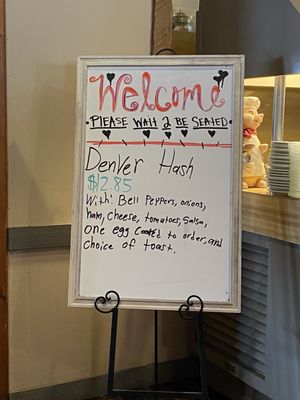 Welcome
PLEASE WAIT 2 BE SEATED
Denver Hash
$12.85
With: Bell Peppers, onions,
ham, cheese, tomatoes, salsa,
one egg cooked to order, and
choice of toast.